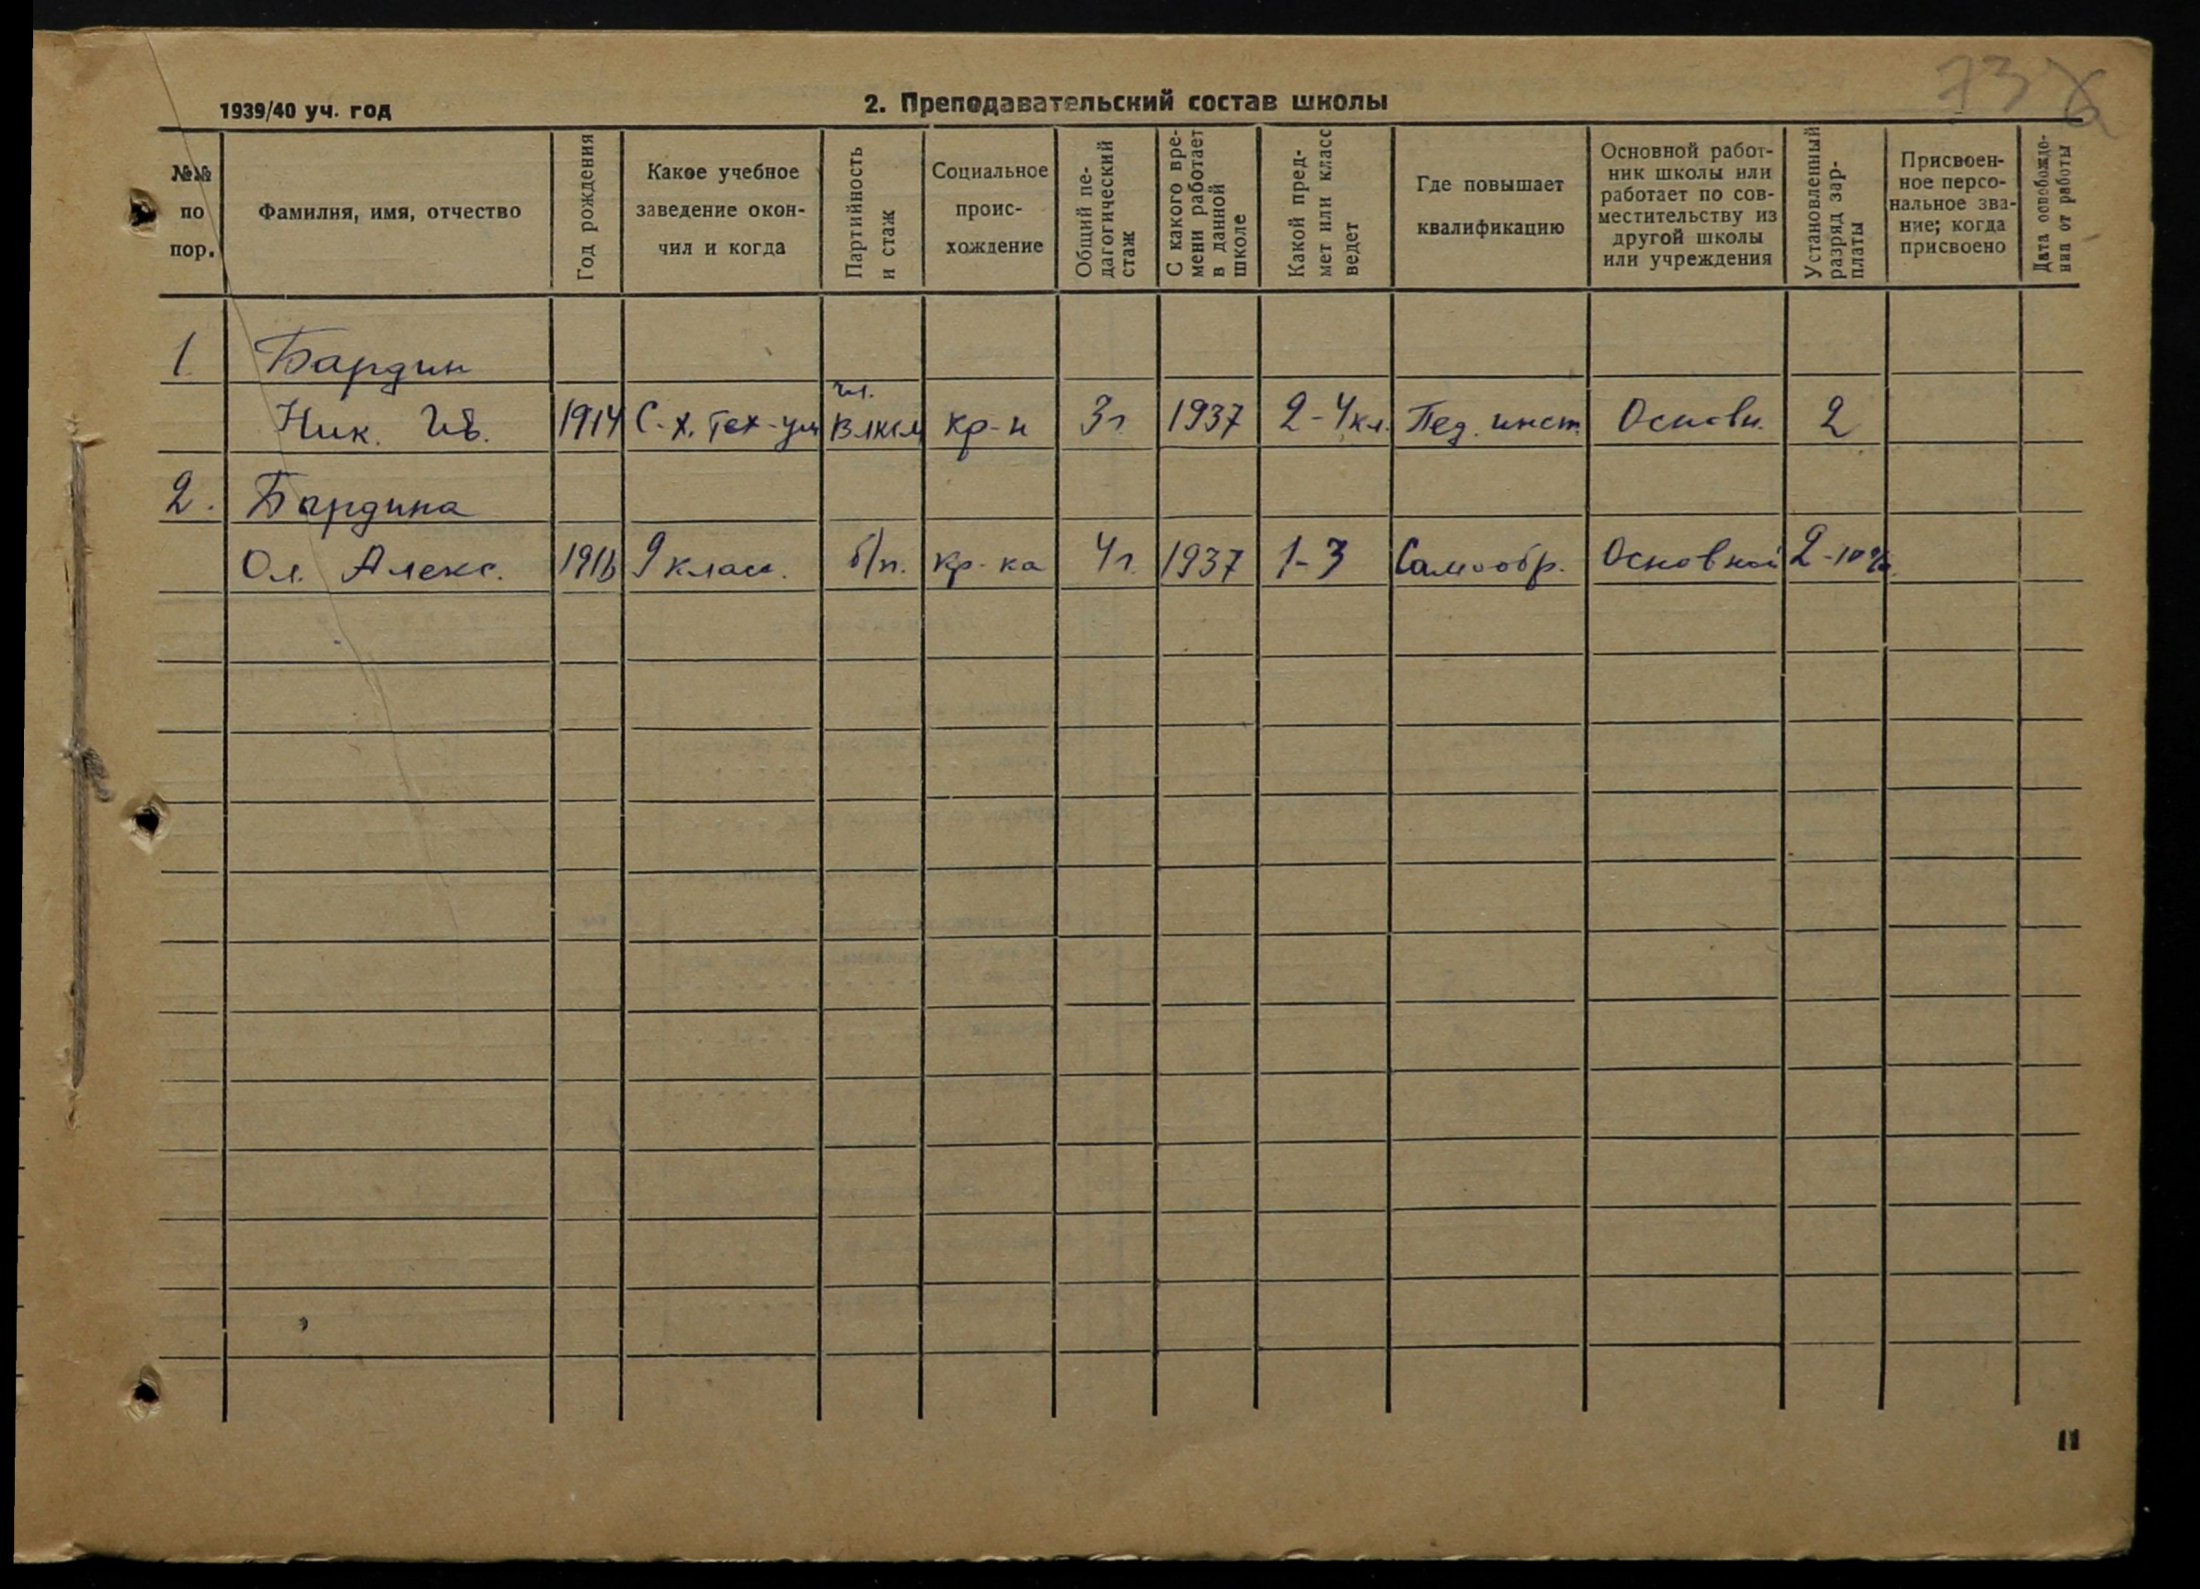 73
1939/40 уч. год
2. Преподавательский состав школы
№№ по пор.
Фамилия, имя, отчество
Год рождения
Какое учебное заведение окон-чил и когда
Партийность и стаж
Социальное проис-хождение
Общий пе-дагогический стаж
С какого вре-мени работает в данной школе
Какой пред-мет или класс ведет
Где повышает квалификацию
Основной работ-ник школы или работает по сов-местительству из другой школы или учреждения
Установленный разряд зар-платы
Присвоен-ное персо-нальное зва-ние; когда присвоено
Дата освобожде-ния от работы
1 Бардин
Ник. Ив. 1914 С-х. Тех-ум чл. ВЛКСМ кр-н 3 г 1937 2-4 кл. Пед. инст. Основн. 2
2. Бардина
Ол. Алекс. 1916 9 класс. б/п. кр-ка 4 г. 1937 1-3 Самообр. Основной 2-10%
11